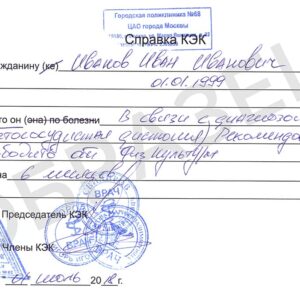 Городская поликлиника №68
ЦАО города Москвы
Справка КЭК
жданину (ке) Иванов Иван Иванович
01.01.1999
то он (она) по болезни В связи с диагнозом
тососудистая дистония) Рекоменда
от физкультуры
на 6 месяцев
Председатель КЭК
ВРАЧ
Члены КЭК
ВРАЧ
июль 20
ОБРАЗЕЦ